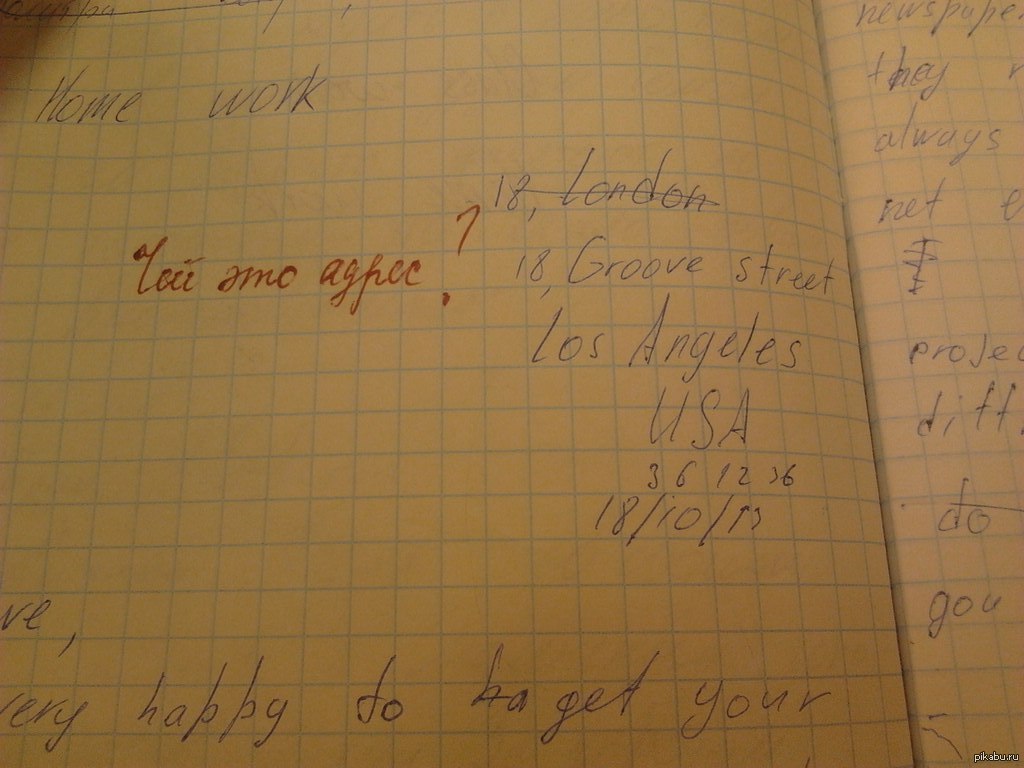 Home work
18, London
Чей это адрес?
18, Groove street
Los Angeles
USA
3 6 12 36
18/10/13
ve,
very happy to get your
newspape
they
always
net
projec
diff
do
you
pikabu.ru